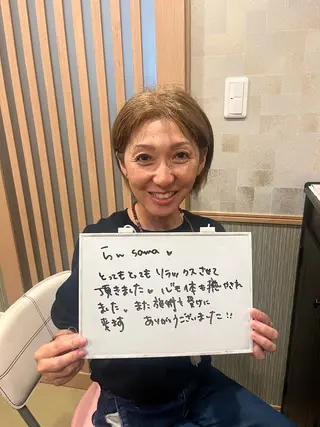 らん sama ♥
とってもとっても リラックスさせて
頂きました。心も体も癒され
ました。また施術を受けに
来ます ありがとうございました!!